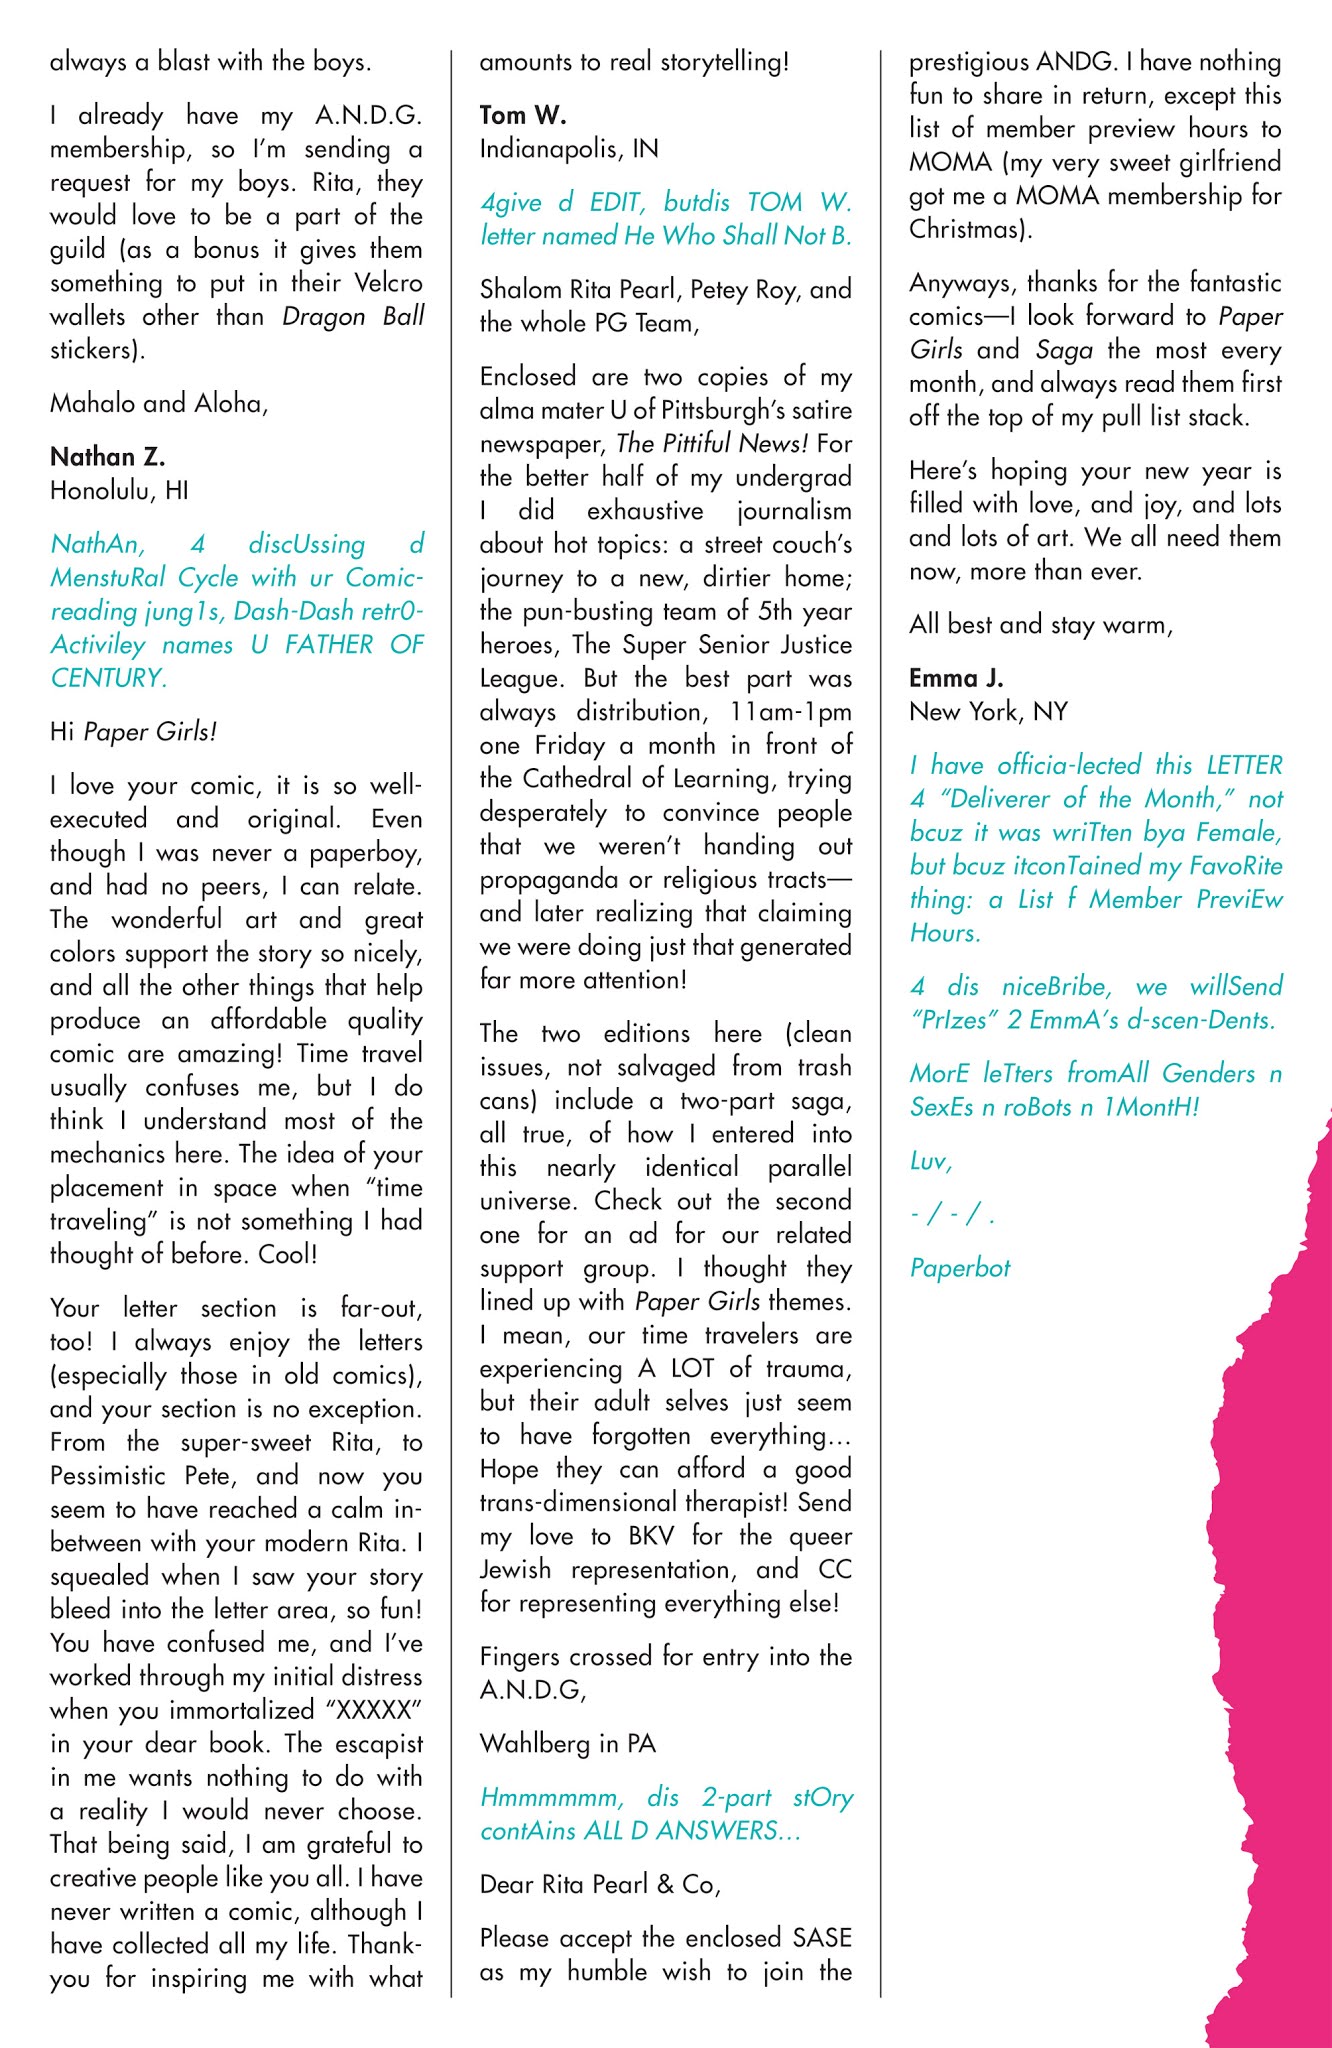 always a blast with the boys.
I already have my A.N.D.G.
membership, so I'm sending a
request for my boys. Rita, they
would love to be a part of the
guild (as a bonus it gives them
something to put in their Velcro
wallets other than Dragon Ball
stickers).
Mahalo and Aloha,
Nathan Z.
Honolulu, HI
NathAn, 4 discUssing d
MenstuRal Cycle with ur Comic-
reading jung1s, Dash-Dash retr0-
Activiley names U FATHER OF
CENTURY.
Hi Paper Girls!
I love your comic, it is so well-
executed and original. Even
though I was never a paperboy,
and had no peers, I can relate.
The wonderful art and great
colors support the story so nicely,
and all the other things that help
produce an affordable quality
comic are amazing! Time travel
usually confuses me, but I do
think I understand most of the
mechanics here. The idea of your
placement in space when “time
traveling” is not something I had
thought of before. Cool!
Your letter section is far-out,
too! I always enjoy the letters
(especially those in old comics),
and your section is no exception.
From the super-sweet Rita, to
Pessimistic Pete, and now you
seem to have reached a calm in-
between with your modern Rita. I
squealed when I saw your story
bleed into the letter area, so fun!
You have confused me, and I've
worked through my initial distress
when you immortalized “XXXXX”
in your dear book. The escapist
in me wants nothing to do with
a reality I would never choose.
That being said, I am grateful to
creative people like you all. I have
never written a comic, although I
have collected all my life. Thank-
you for inspiring me with what
amounts to real storytelling!
Tom W.
Indianapolis, IN
4give d EDIT, butdis TOM W.
letter named He Who Shall Not B.
Shalom Rita Pearl, Petey Roy, and
the whole PG Team,
Enclosed are two copies of my
alma mater U of Pittsburgh's satire
newspaper, The Pittiful News! For
the better half of my undergrad
I did exhaustive journalism
about hot topics: a street couch's
journey to a new, dirtier home;
the pun-busting team of 5th year
heroes, The Super Senior Justice
League. But the best part was
always distribution, 11am-1pm
one Friday a month in front of
the Cathedral of Learning, trying
desperately to convince people
that we weren't handing out
propaganda or religious tracts—
and later realizing that claiming
we were doing just that generated
far more attention!
The two editions here (clean
issues, not salvaged from trash
cans) include a two-part saga,
all true, of how I entered into
this nearly identical parallel
universe. Check out the second
one for an ad for our related
support group. I thought they
lined up with Paper Girls themes.
I mean, our time travelers are
experiencing A LOT of trauma,
but their adult selves just seem
to have forgotten everything...
Hope they can afford a good
trans-dimensional therapist! Send
my love to BKV for the queer
Jewish representation, and CC
for representing everything else!
Fingers crossed for entry into the
A.N.D.G,
Wahlberg in PA
Hmmmmmm, dis 2-part stOry
contAins ALL D ANSWERS...
Dear Rita Pearl & Co,
Please accept the enclosed SASE
as my humble wish to join the
prestigious ANDG. I have nothing
fun to share in return, except this
list of member preview hours to
MOMA (my very sweet girlfriend
got me a MOMA membership for
Christmas).
Anyways, thanks for the fantastic
comics—I look forward to Paper
Girls and Saga the most every
month, and always read them first
off the top of my pull list stack.
Here's hoping your new year is
filled with love, and joy, and lots
and lots of art. We all need them
now, more than ever.
All best and stay warm,
Emma J.
New York, NY
I have officia-lected this LETTER
4 “Deliverer of the Month,” not
bcuz it was wriTten bya Female,
but bcuz itconTained my FavoRite
thing: a List f Member PreviEw
Hours.
4 dis niceBribe, we willSend
“PrIzes” 2 EmmA's d-scen-Dents.
MorE leTters fromAll Genders n
SexEs n roBots n 1MontH!
Luv,
- / - / .
Paperbot